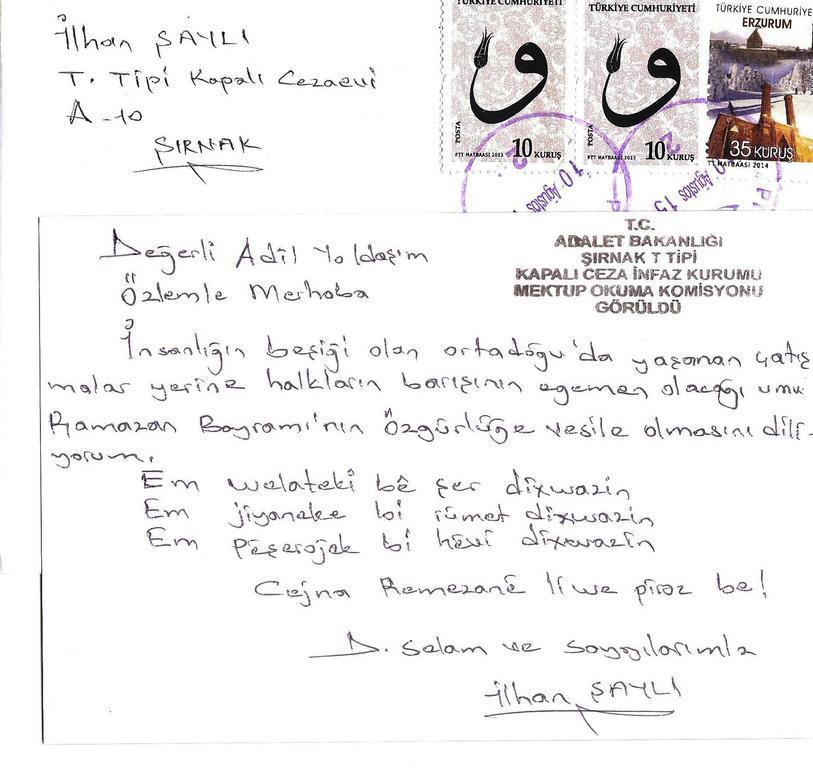 İlhan ŞAYLI
T. Tipi Kapalı Cezaevi
A-10
ŞIRNAK
TÜRKİYE CUMHURİYETİ
POSTA
PTT MATBAASI 2013 10 KURUŞ
TÜRKİYE CUMHURİYETİ
POSTA
PTT MATBAASI 2013 10 KURUŞ
TÜRKİYE CUMHURİYE
ERZURUM
35 KURUŞ
MATBAASI 2014
10 Ağustos
Ağustos 15
T.C.
ADALET BAKANLIĞI
ŞIRNAK T TİPİ
KAPALI CEZA İNFAZ KURUMU
MEKTUP OKUMA KOMİSYONU
GÖRÜLDÜ
Değerli Adil Yoldaşım
Özlemle Merhaba
İnsanlığın beşiği olan ortadoğu'da yaşanan çatış
malar yerine halkların barışının egemen olacağı umu
Ramazan Bayramı'nın Özgürlüğe vesile olmasını dili-
yorum.
Em welateki bê şer dixwazin
Em jiyaneke bi rûmet dixwazin
Em pêşerojek bi hêvi dixwazin
Cejna Remezanê li we piroz be!
D. Selam ve saygılarımla
İlhan ŞAYLI